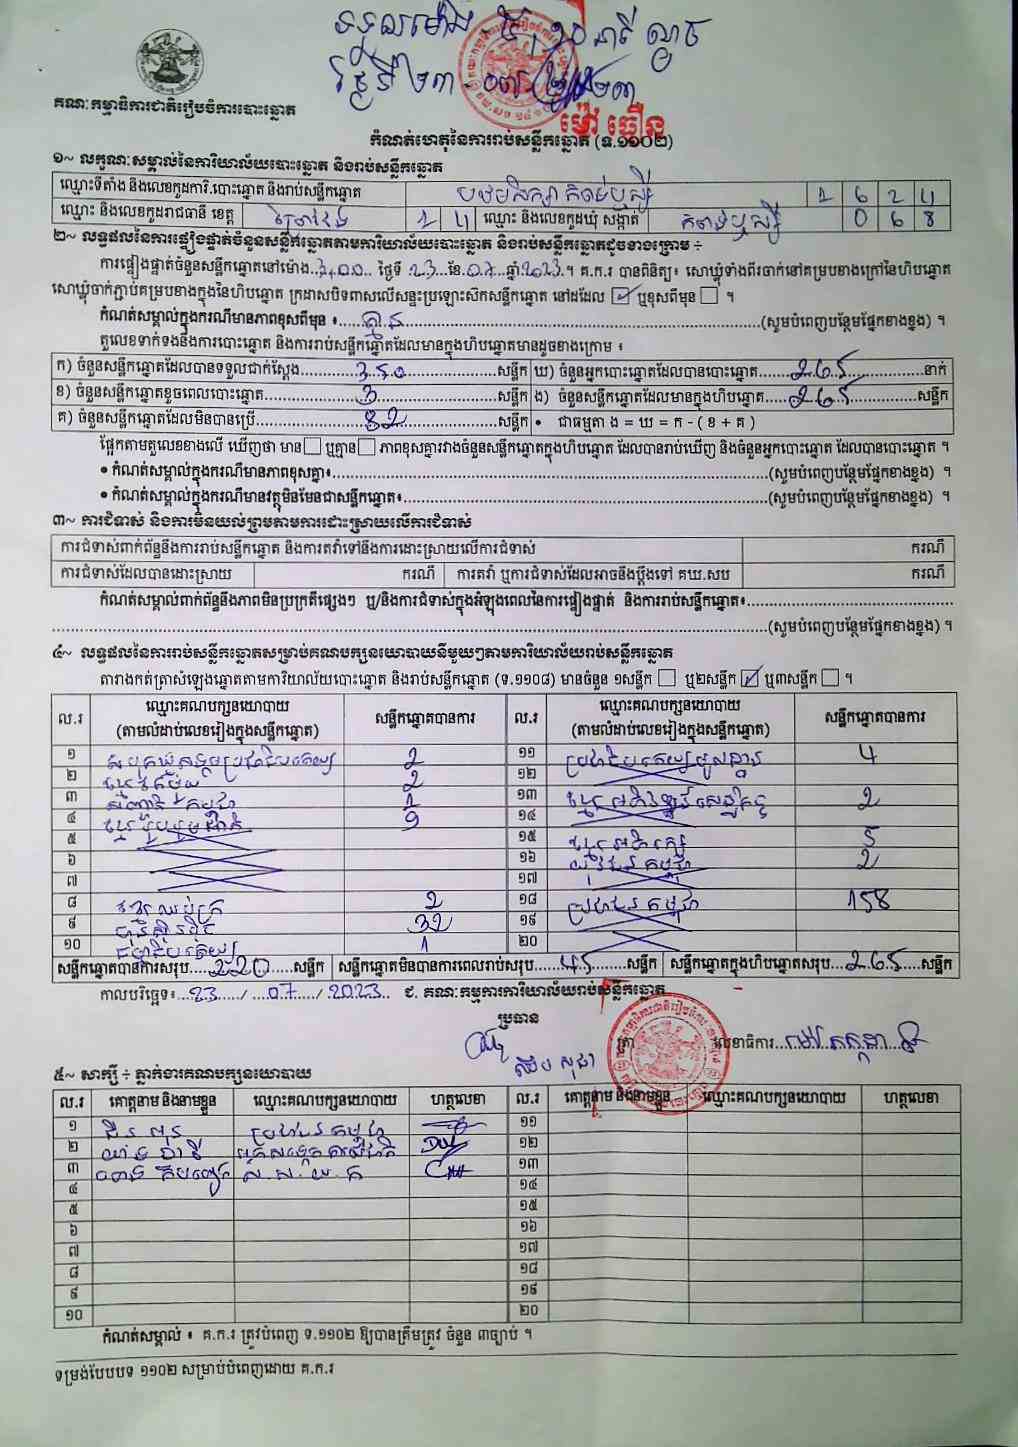 គណៈកម្មាធិការជាតិរៀបចំការបោះឆ្នោត
ម៉ៅ ធឿន
កំណត់ហេតុនៃការរាប់សន្លឹកឆ្នោត (ទ.១១០២)
១~ លក្ខណៈសម្គាល់នៃការិយាល័យបោះឆ្នោត និងរាប់សន្លឹកឆ្នោត
ឈ្មោះទីតាំង និងលេខកូដការិ.បោះឆ្នោត និងរាប់សន្លឹកឆ្នោត បឋមសិក្សា កំពង់ឫស្សី 1 6 2 4
ឈ្មោះ និងលេខកូដរាជធានី ខេត្ត ព្រៃវែង 1 4 ឈ្មោះ និងលេខកូដឃុំ សង្កាត់ កំពង់ឫស្សី 0 6 8
២~ លទ្ធផលនៃការផ្ទៀងផ្ទាត់ចំនួនសន្លឹកឆ្នោតតាមការិយាល័យបោះឆ្នោត និងរាប់សន្លឹកឆ្នោតដូចខាងក្រោម ÷
ការផ្ទៀងផ្ទាត់ចំនួនសន្លឹកឆ្នោតនៅម៉ោង..3,00.. ថ្ងៃទី 23 ខែ.07 ឆ្នាំ 2023.។ គ.ក.រ បានពិនិត្យ៖ សោឃ្លុំទាំងពីរចាក់នៅគម្របខាងក្រៅនៃហិបឆ្នោត
សោឃ្លុំចាក់ភ្ជាប់គម្របខាងក្នុងនៃហិបឆ្នោត ក្រដាសបិទពាសលើសន្ទះប្រឡោះសិកសន្លឹកឆ្នោត នៅដដែល ☑ ឬខុសពីមុន ☐ ។
កំណត់សម្គាល់ក្នុងករណីមានភាពខុសពីមុន ៖ គ្មាន (សូមបំពេញបន្ថែមផ្នែកខាងខ្នង) ។
តួលេខទាក់ទងនឹងការបោះឆ្នោត និងការរាប់សន្លឹកឆ្នោតដែលមានក្នុងហិបឆ្នោតមានដូចខាងក្រោម ៖
ក) ចំនួនសន្លឹកឆ្នោតដែលបានទទួលជាក់ស្តែង 350 សន្លឹក ឃ) ចំនួនអ្នកបោះឆ្នោតដែលបានបោះឆ្នោត 265 នាក់
ខ) ចំនួនសន្លឹកឆ្នោតខូចពេលបោះឆ្នោត 3 សន្លឹក ង) ចំនួនសន្លឹកឆ្នោតដែលមានក្នុងហិបឆ្នោត 265 សន្លឹក
គ) ចំនួនសន្លឹកឆ្នោតដែលមិនបានប្រើ 82 សន្លឹក • ជាធម្មតា ង = ឃ = ក - ( ខ + គ )
ផ្អែកតាមតួលេខខាងលើ ឃើញថា មាន ☐ ឬគ្មាន ☐ ភាពខុសគ្នារវាងចំនួនសន្លឹកឆ្នោតក្នុងហិបឆ្នោត ដែលបានរាប់ឃើញ និងចំនួនអ្នកបោះឆ្នោត ដែលបានបោះឆ្នោត ។
• កំណត់សម្គាល់ក្នុងករណីមានភាពខុសគ្នា៖ (សូមបំពេញបន្ថែមផ្នែកខាងខ្នង) ។
• កំណត់សម្គាល់ក្នុងករណីមានវត្ថុមិនមែនជាសន្លឹកឆ្នោត៖ (សូមបំពេញបន្ថែមផ្នែកខាងខ្នង) ។
៣~ ការជំទាស់ និងការមិនយល់ព្រមតាមការដោះស្រាយលើការជំទាស់
ការជំទាស់ពាក់ព័ន្ធនឹងការរាប់សន្លឹកឆ្នោត និងការតវ៉ាទៅនឹងការដោះស្រាយលើការជំទាស់ ករណី
ការជំទាស់ដែលបានដោះស្រាយ ករណី ការតវ៉ា ឬការជំទាស់ដែលអាចនឹងប្តឹងទៅ គឃ.សប ករណី
កំណត់សម្គាល់ពាក់ព័ន្ធនឹងភាពមិនប្រក្រតីផ្សេងៗ ឬ/និងការជំទាស់ក្នុងអំឡុងពេលនៃការផ្ទៀងផ្ទាត់ និងការរាប់សន្លឹកឆ្នោត៖
(សូមបំពេញបន្ថែមផ្នែកខាងខ្នង) ។
៤~ លទ្ធផលនៃការរាប់សន្លឹកឆ្នោតសម្រាប់គណបក្សនយោបាយនីមួយៗតាមការិយាល័យរាប់សន្លឹកឆ្នោត
តារាងកត់ត្រាសំឡេងឆ្នោតតាមការិយាល័យបោះឆ្នោត និងរាប់សន្លឹកឆ្នោត (ទ.១១០៨) មានចំនួន ១សន្លឹក ☐ ឬ២សន្លឹក ☑ ឬ៣សន្លឹក ☐ ។
ល.រ ឈ្មោះគណបក្សនយោបាយ (តាមលំដាប់លេខរៀងក្នុងសន្លឹកឆ្នោត) សន្លឹកឆ្នោតបានការ ល.រ ឈ្មោះគណបក្សនយោបាយ (តាមលំដាប់លេខរៀងក្នុងសន្លឹកឆ្នោត) សន្លឹកឆ្នោតបានការ
១ 2 ១១ 4
២ 2 ១២
៣ 1 ១៣ 2
៤ 9 ១៤
៥ ១៥ 5
៦ ១៦ យុវជនកម្ពុជា 2
៧ ១៧
៨ 2 ១៨ ប្រជាជនកម្ពុជា 158
៩ ហ្វ៊ុនស៊ិនប៉ិច 32 ១៩
១០ 1 ២០
សន្លឹកឆ្នោតបានការសរុប 220 សន្លឹក សន្លឹកឆ្នោតមិនបានការពេលរាប់សរុប 45 សន្លឹក សន្លឹកឆ្នោតក្នុងហិបឆ្នោតសរុប 265 សន្លឹក
កាលបរិច្ឆេទ៖ 23 / 07 / 2023 ជ. គណៈកម្មការការិយាល័យរាប់សន្លឹកឆ្នោត
ប្រធាន
ត្រា លេខាធិការ
៥~ សាក្សី ÷ ភ្នាក់ងារគណបក្សនយោបាយ
ល.រ គោត្តនាម និងនាមខ្លួន ឈ្មោះគណបក្សនយោបាយ ហត្ថលេខា ល.រ គោត្តនាម និងនាមខ្លួន ឈ្មោះគណបក្សនយោបាយ ហត្ថលេខា
១ ប្រជាជនកម្ពុជា ១១
២ ១២
៣ ស.ស.យ.ក ១៣
៤ ១៤
៥ ១៥
៦ ១៦
៧ ១៧
៨ ១៨
៩ ១៩
១០ ២០
កំណត់សម្គាល់ ៖ គ.ក.រ ត្រូវបំពេញ ទ.១១០២ ឱ្យបានត្រឹមត្រូវ ចំនួន ៣ច្បាប់ ។
ទម្រង់បែបបទ ១១០២ សម្រាប់បំពេញដោយ គ.ក.រ